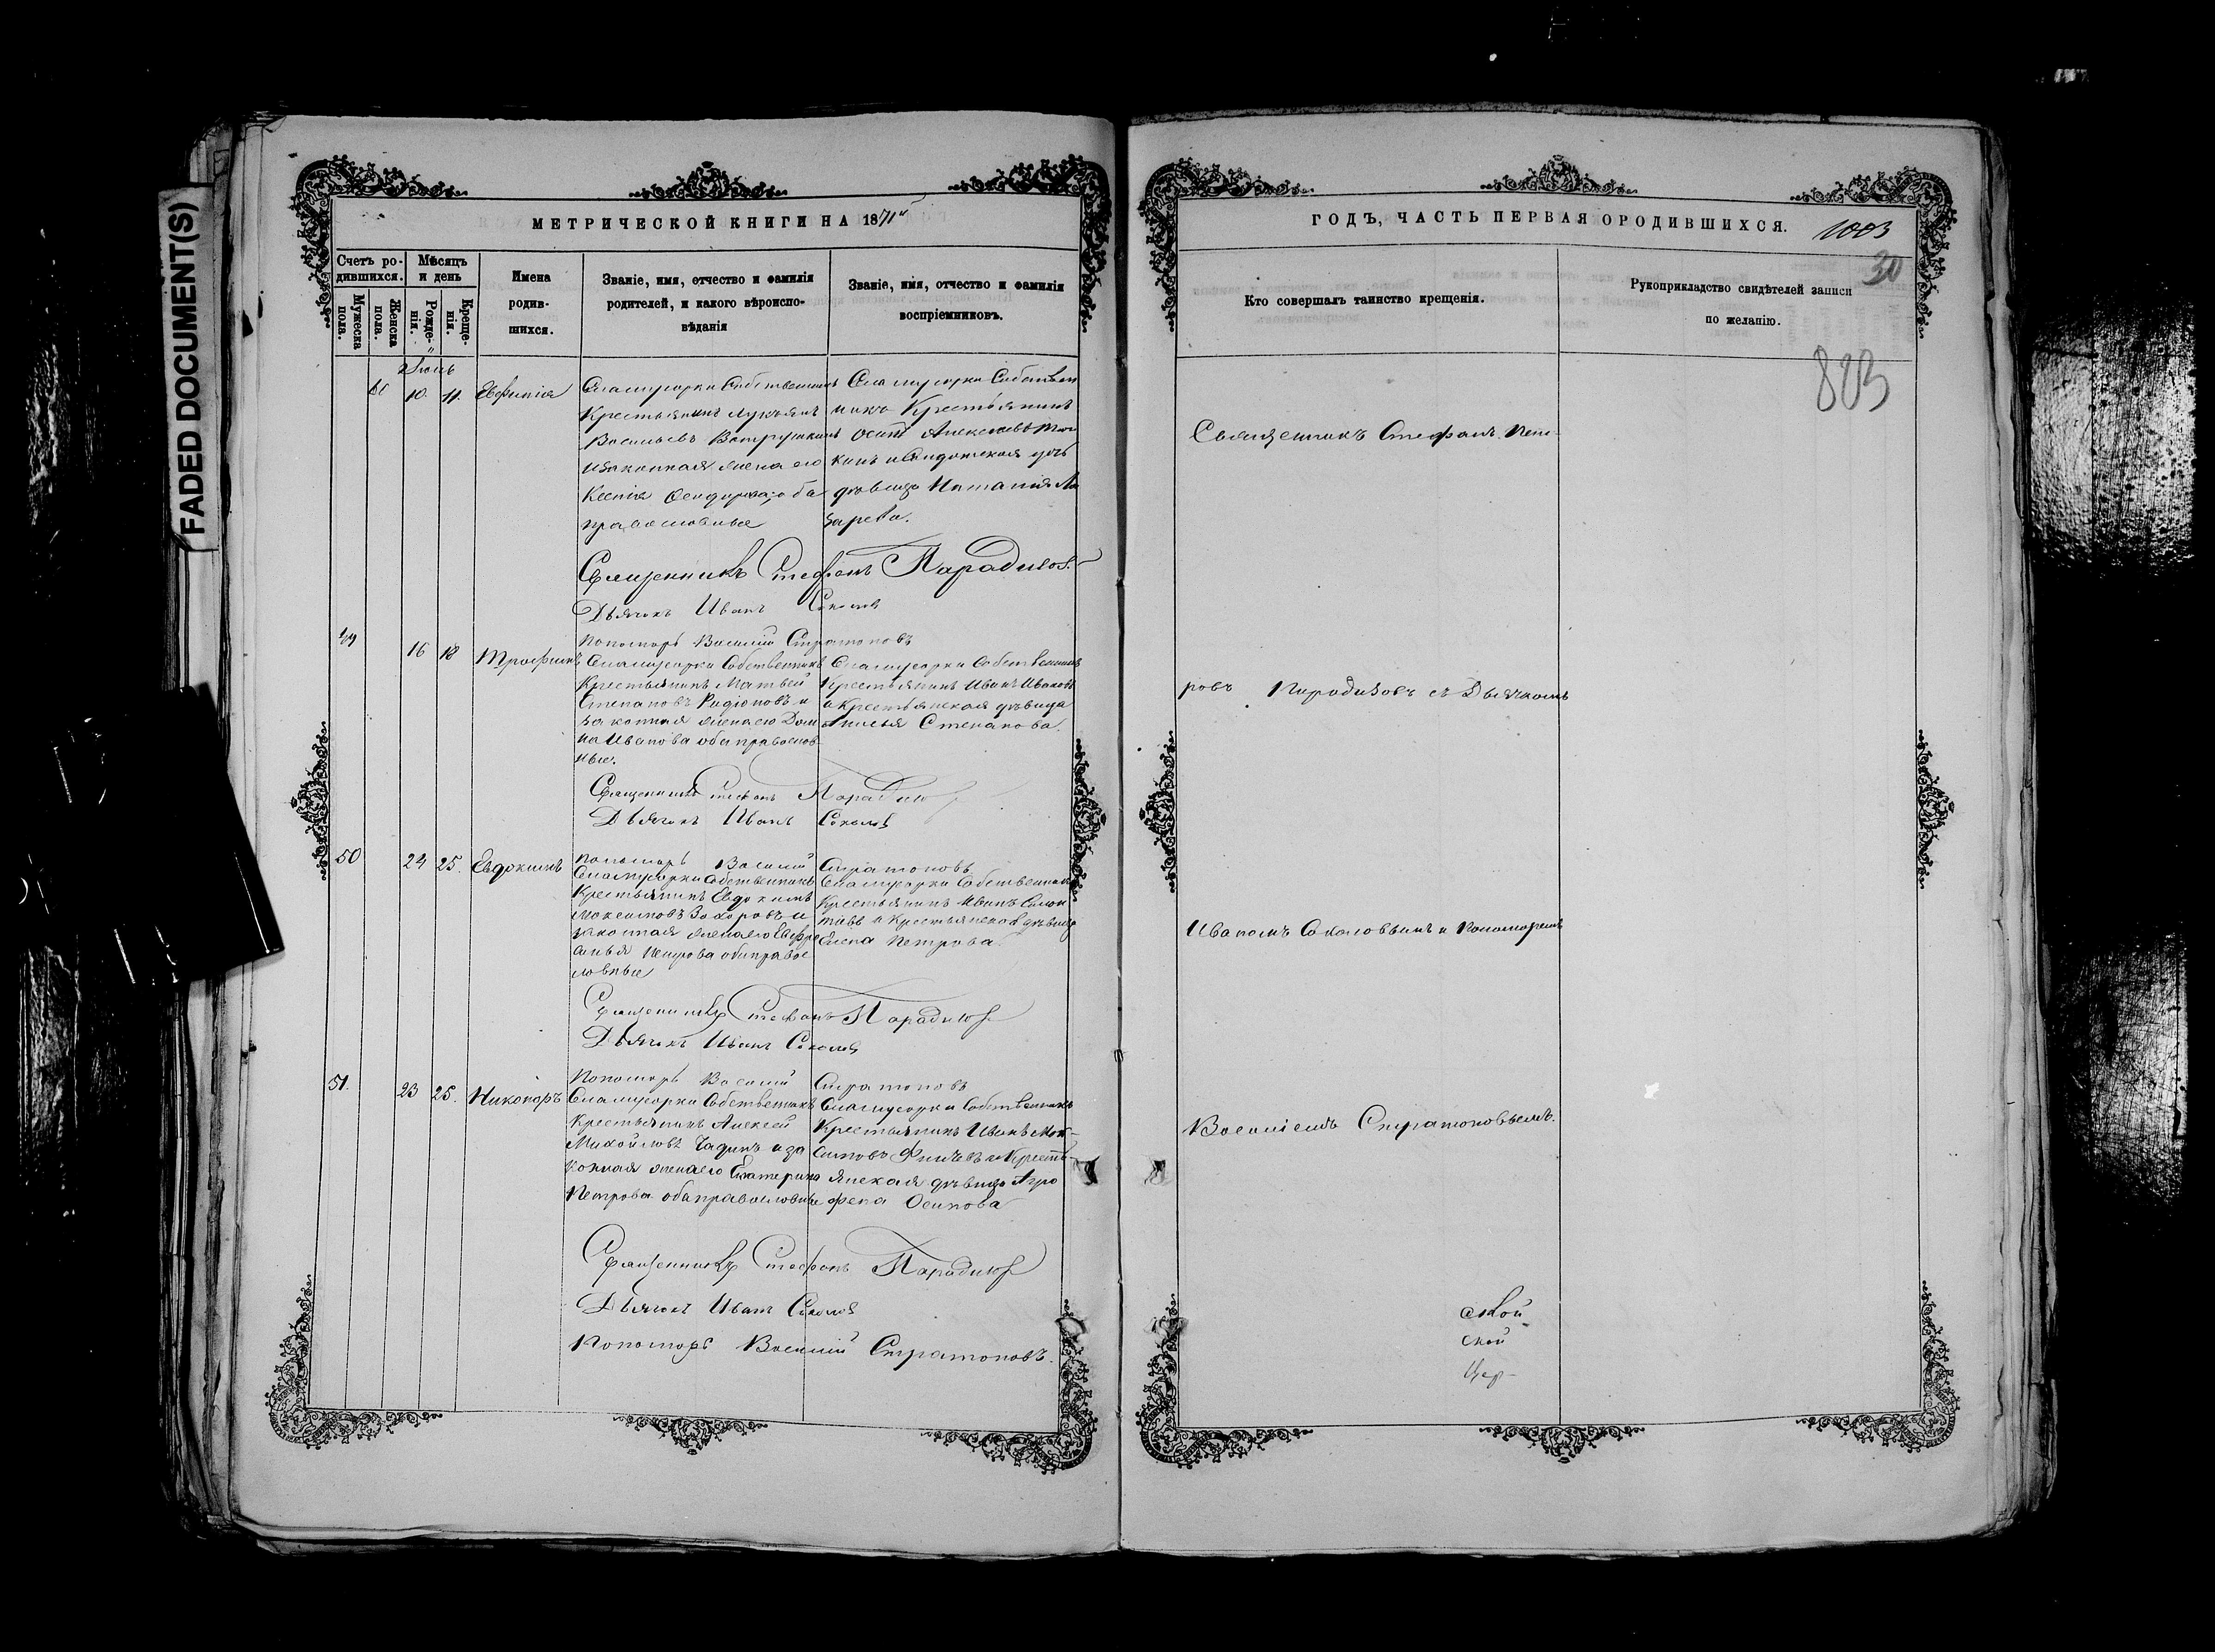 FADED DOCUMENT(S)
МЕТРИЧЕСКОЙ КНИГИ НА 1871й
Счетъ родившихся.
Мужеска пола.
Женска пола.
Мѣсяцъ и день
Рожденія.
Крещенія.
Имена
родив-
шихся.
Званіе, имя, отчество и фамилія
родителей, и какого вѣроиспо-
вѣданія
Званіе, имя, отчество и фамилія
воспріемниковъ.
10. 11. Евфимія
Собственникъ
Крестьянинъ Лукьянъ
Васильевъ
и законная жена его
Ксенія оба
православные
Собствен
никъ Крестьянинъ
Осипъ Алексеевъ
дѣвица Наталія Ла
зарева.
Священникъ Стефанъ Парадизов.
Дьячокъ Иванъ Соколов
Пономарь Василій Стратоновъ
49 16 18 Трофимъ
Собственникъ
Крестьянинъ Матвей
Степановъ Родіоновъ и
законная жена его Дом
на Иванова оба православ
ные.
Собственникъ
Крестьянинъ Иванъ Ивановъ
и Крестьянская дѣвица
Анисья Степанова.
Священникъ Стефанъ Парадизов
Дьячокъ Иванъ Соколов
Пономарь Василий Стратоновъ
50 24 25. Евдокимъ
Собственникъ
Крестьянинъ Евдокимъ
Максимовъ Захаровъ и
законная жена его Евфро
синья Петрова оба правос
ловные
Собственникъ
Крестьянинъ Иванъ
и Крестьянская дѣвица
Елена Петрова
Священникъ Стефанъ Парадизов
Дьячокъ Иванъ Соколов
Пономарь Василий Стратоновъ
51. 23 25. Никоноръ
Собственникъ
Крестьянинъ Алексей
Михайловъ Чадинъ и за
конная жена его Екатерина
Петрова оба православные
Собственникъ
Крестьянинъ Иванъ Мак-
симовъ и Кресть-
янская дѣвица Агро
фена Осипова
Священникъ Стефанъ Парадизов
Дьячокъ Иванъ Соколов
Пономарь Василий Стратоновъ.
ГОДЪ, ЧАСТЬ ПЕРВАЯ ОРОДИВШИХСЯ.
1003
30
Кто совершалъ таинство крещенія.
Рукоприкладство свидѣтелей записи
по желанію.
823
Священникъ Стефанъ Пет-
ровъ Парадизовъ съ Дьячкомъ
Иваномъ Соколовымъ и Пономаремъ
Василіемъ Стратоновымъ.
ской
Цер-